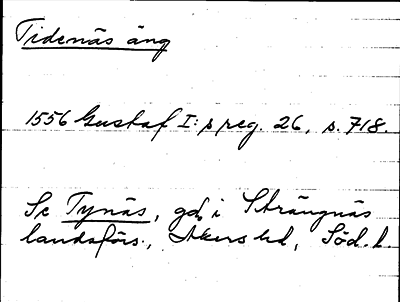 Tidenäs äng
1556 Gustaf I:s reg. 26, s. 718.
Se Tynäs, gd, i Strängnäs
landsförs., Åkers hd, Söd. l.